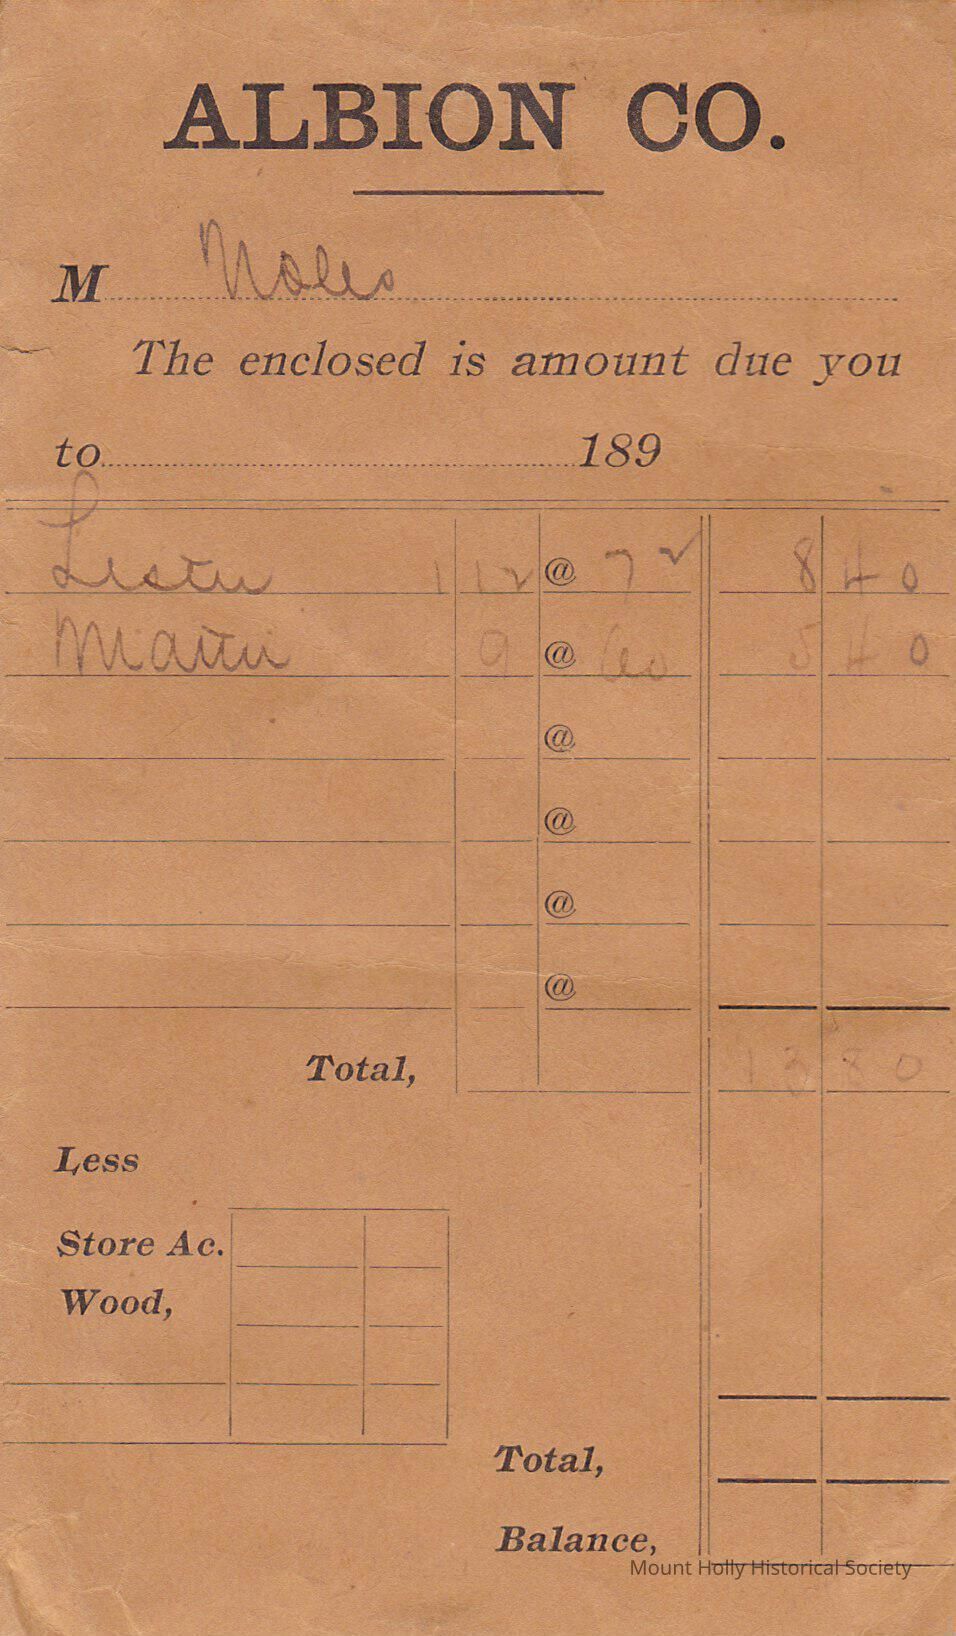 ALBION CO.
M Noles
The enclosed is amount due you
to 189
Lester 112 @ 7 8 40
Martin 9 @ 60 5 40
@
@
@
@
Total, 13 80
Less
Store Ac.
Wood,
Total,
Balance,
Mount Holly Historical Society